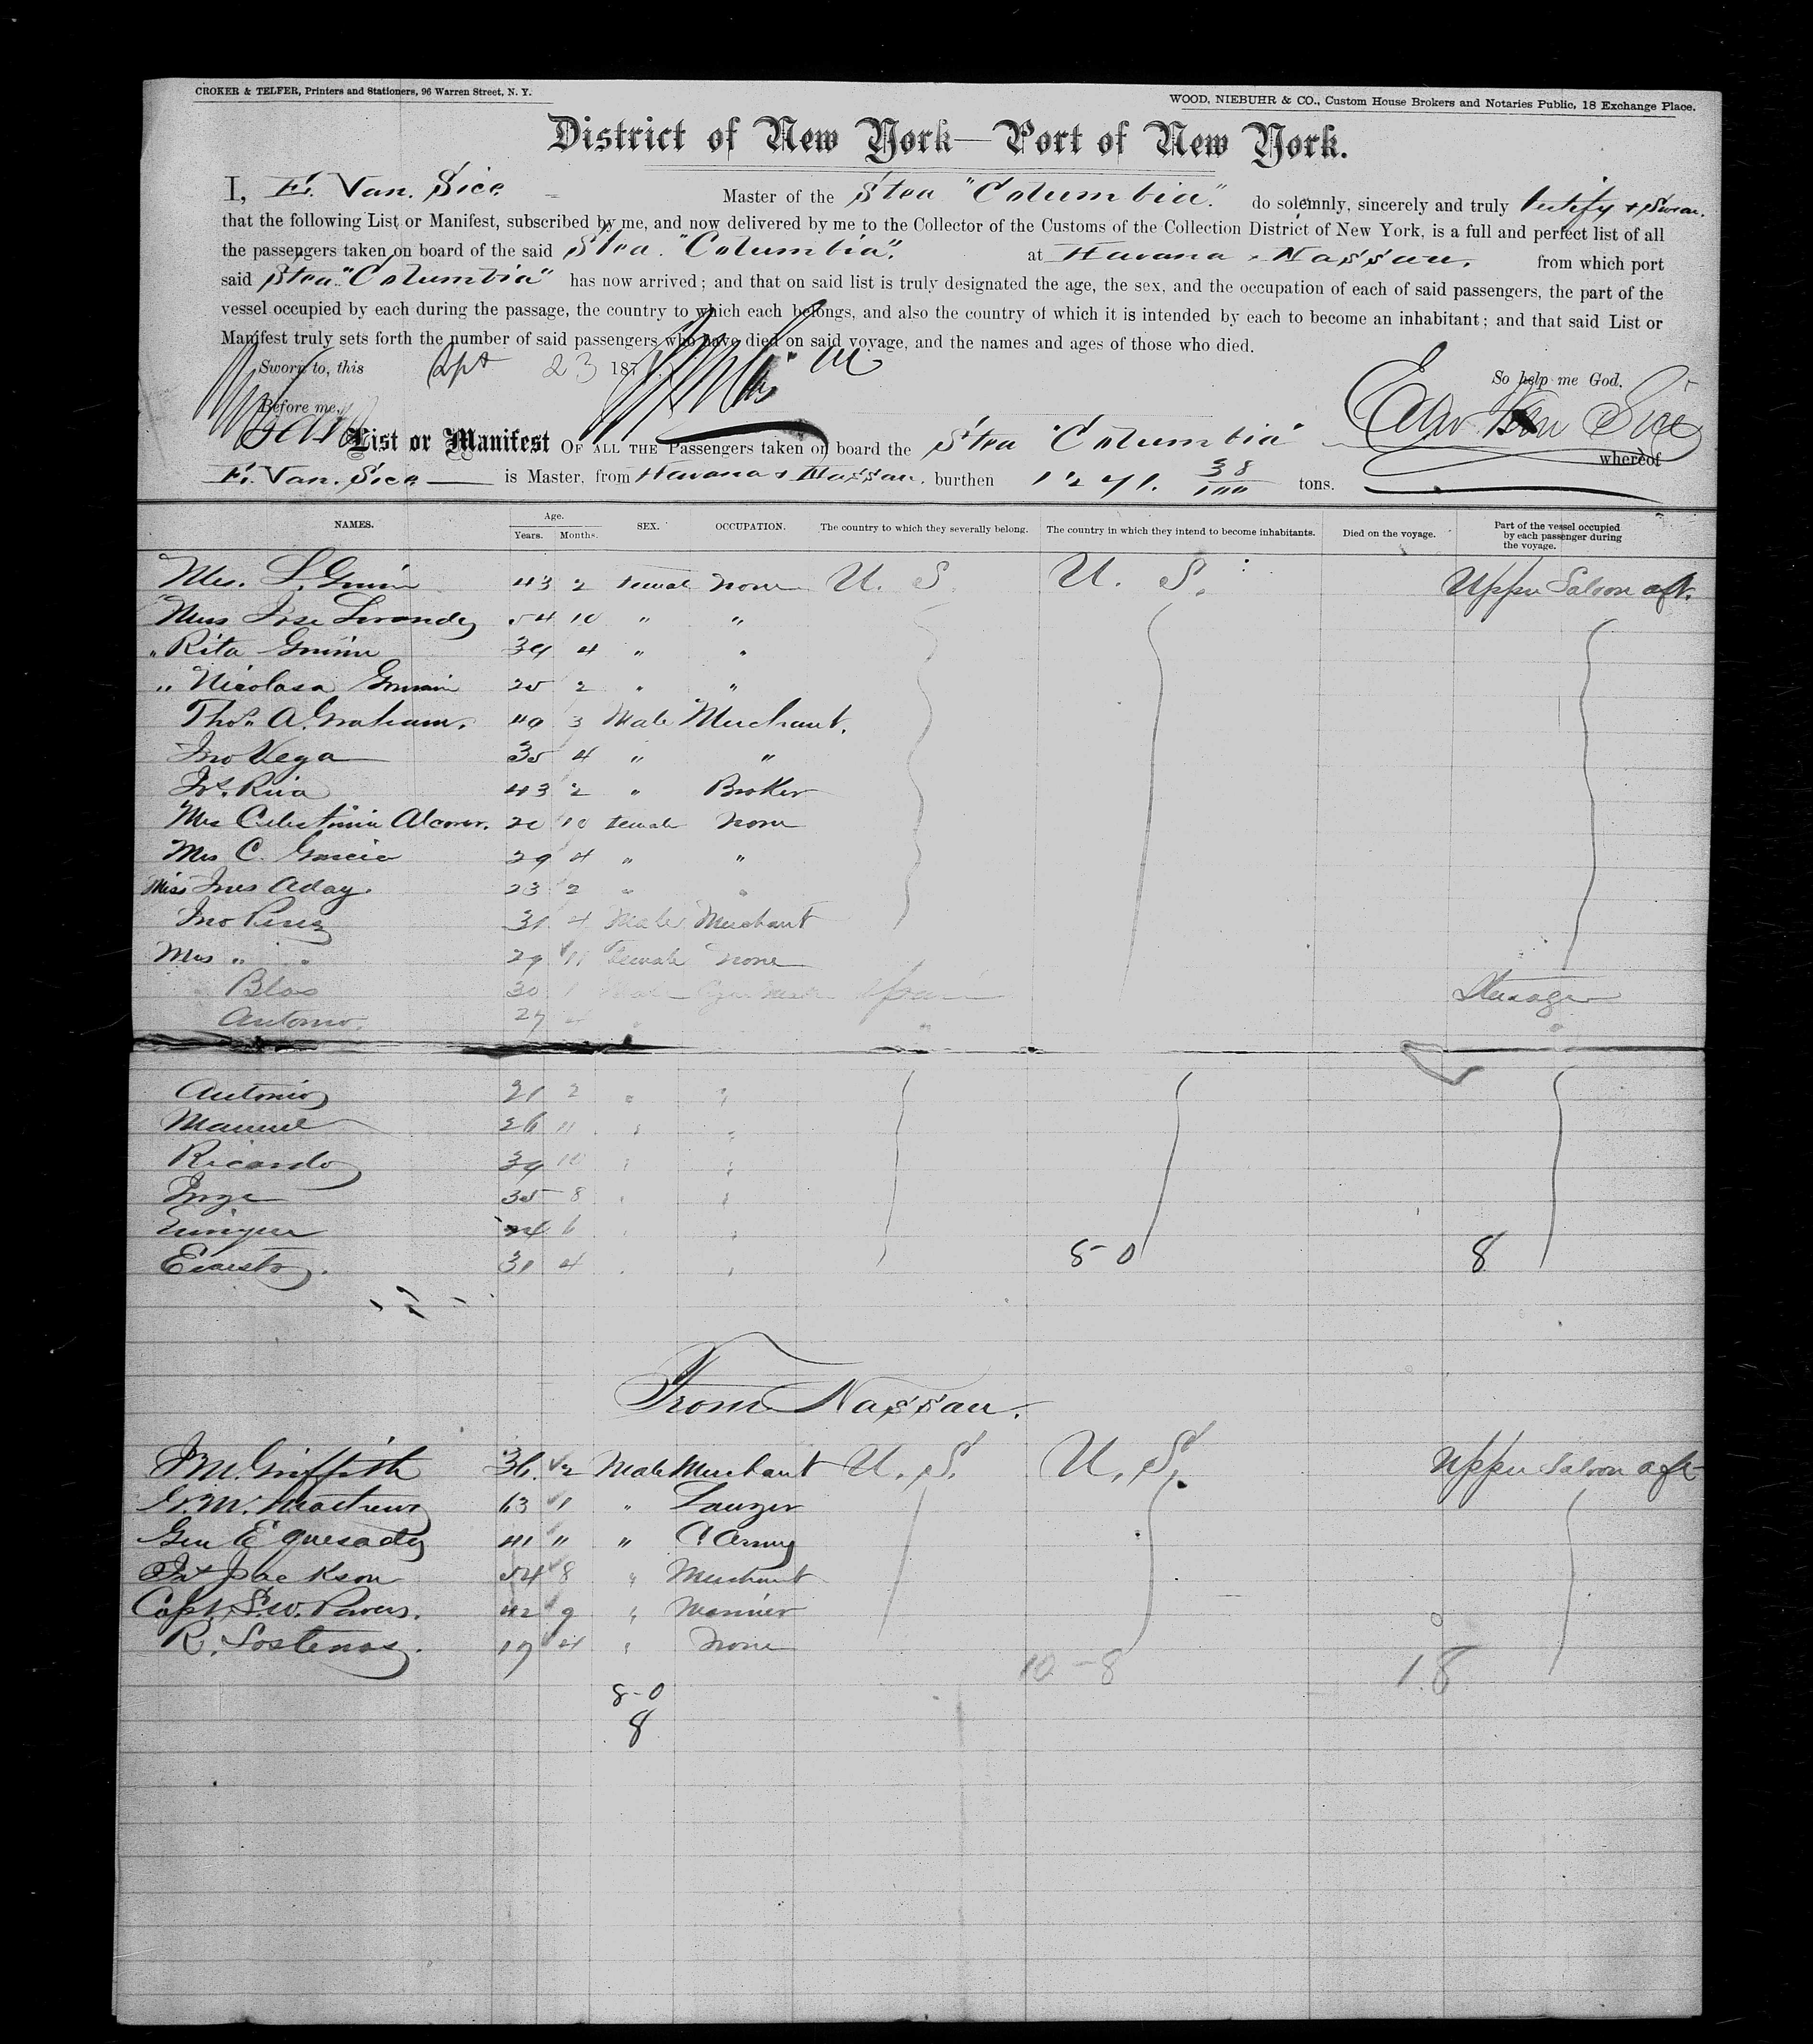 CROKER & TELFER, Printers and Stationers, 96 Warren Street, N. Y.
WOOD, NIEBUHR & CO., Custom House Brokers and Notaries Public, 18 Exchange Place.
District of New York—Port of New York.
I, E. Van. Sice Master of the Stea "Columbia." do solemnly, sincerely and truly Certify + Swear.
that the following List or Manifest, subscribed by me, and now delivered by me to the Collector of the Customs of the Collection District of New York, is a full and perfect list of all
the passengers taken on board of the said Stea. "Columbia". at Havana & Nassau. from which port
said Stea. "Columbia" has now arrived; and that on said list is truly designated the age, the sex, and the occupation of each of said passengers, the part of the
vessel occupied by each during the passage, the country to which each belongs, and also the country of which it is intended by each to become an inhabitant; and that said List or
Manifest truly sets forth the number of said passengers who have died on said voyage, and the names and ages of those who died.
Sworn to, this Sept 23 187
So help me God,
Before me,
Edw Van Sice
List or Manifest OF ALL THE Passengers taken on board the Stea "Columbia" whereof
E. Van. Sice is Master, from Havana & Nassau. burthen 1271. 38/100 tons.
NAMES. Age. Years. Months. SEX. OCCUPATION. The country to which they severally belong. The country in which they intend to become inhabitants. Died on the voyage. Part of the vessel occupied by each passenger during the voyage.
Mrs. L. 43 2 Female None U. S. U. S. Upper Saloon aft.
Miss 54 10 " "
" Rita 39 4 " "
" Nicolasa 25 2 " "
Thos. A. Graham. 49 3 Male Merchant.
Jno Vega 35 4 " "
43 2 " Broker
Mrs Celestinia Alcover. 20 10 Female None
Mrs C. Garcia 29 4 " "
Miss Ines Aday. 23 2 " "
Jno Perez 31 4 Male Merchant
Mrs " " 29 11 Female None
Blas 30 1 Male Spain Steerage
Antonio. 27 4 " " "
Antonio 21 2 " "
Manuel 26 11 " "
Ricardo 39 10 " "
Jorge 35 8 " "
Enrique 24 6 " "
Evaristo. 31 4 " " 8-0 8
From Nassau.
J. M. Griffith 36. 2 Male Merchant U. S. U. S. Upper Saloon aft
G. M. Mathews 63 1 " Lawyer
Gen E Quesada 41 " " C Army
Jackson 54 8 " Merchant
Capt. S. W. Powers. 42 9 " Mariner
R. Sostenas. 17 4 " None
10-8 18
8-0
8